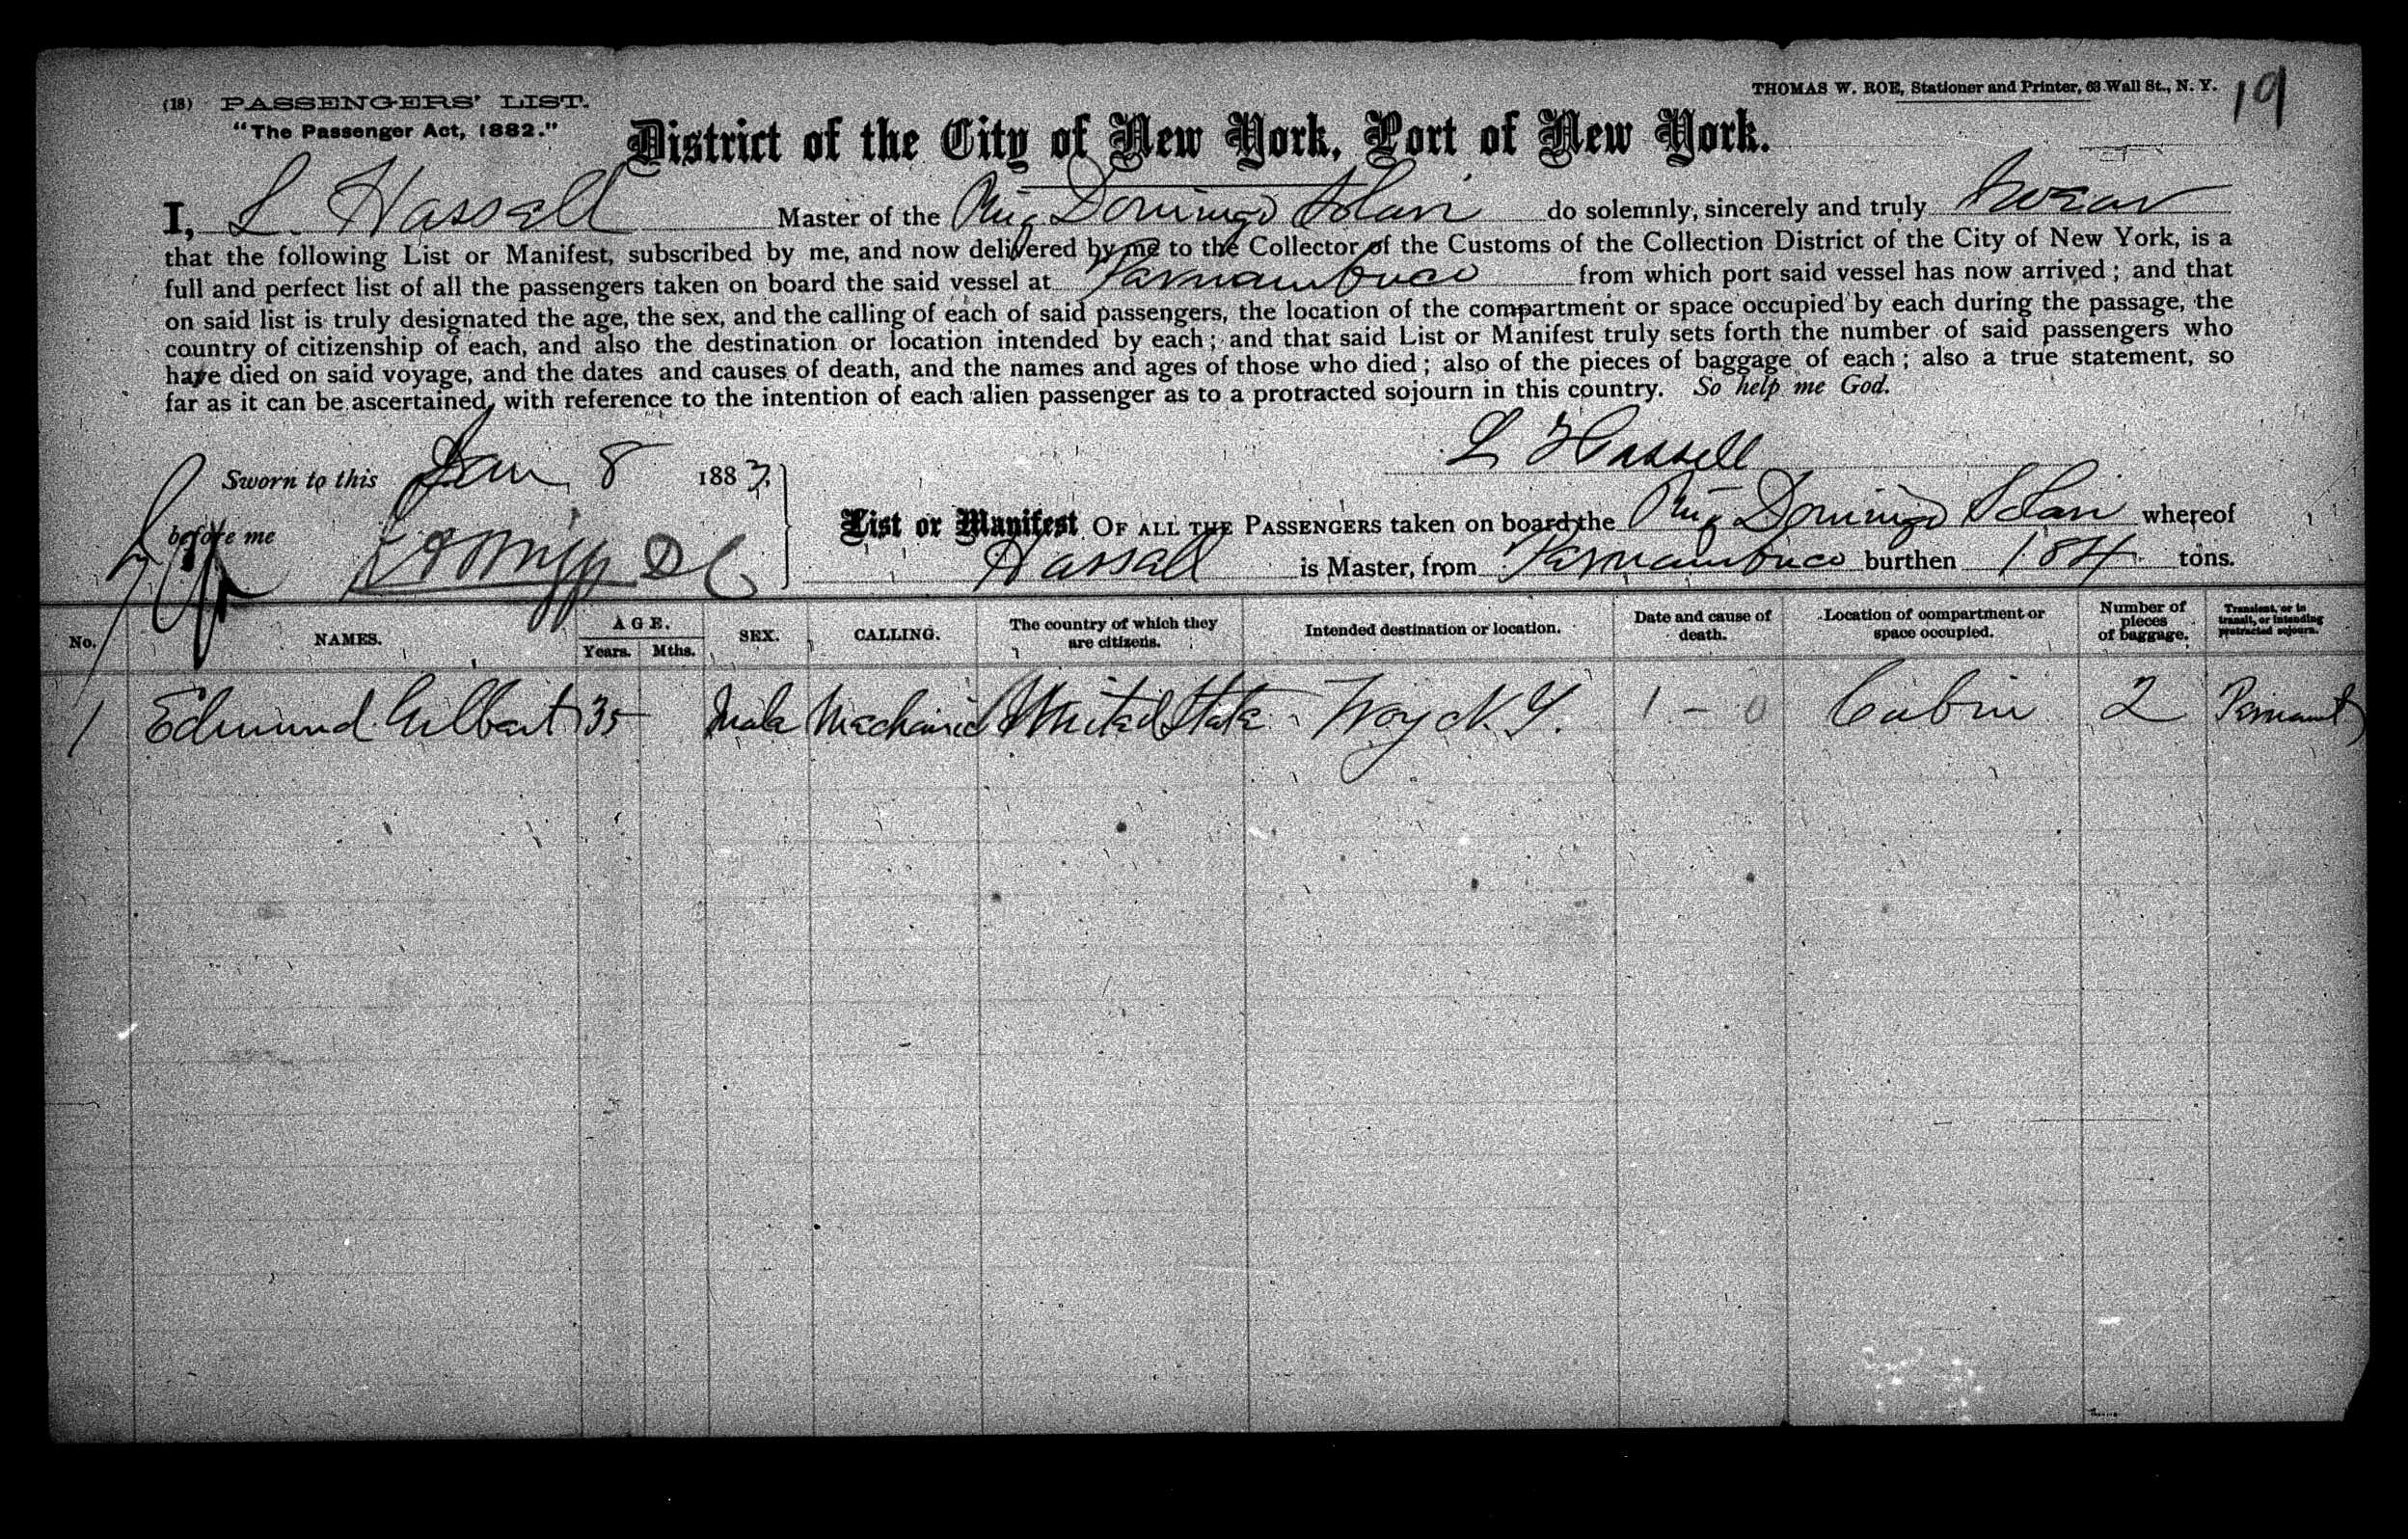 (18) PASSENGERS' LIST.
THOMAS W. ROE, Stationer and Printer, 63 Wall St., N. Y.
19
"The Passenger Act, 1882."
District of the City of New York, Port of New York.
I, L. Hassell Master of the Brig Domingo do solemnly, sincerely and truly swear
that the following List or Manifest, subscribed by me, and now delivered by me to the Collector of the Customs of the Collection District of the City of New York, is a
full and perfect list of all the passengers taken on board the said vessel at Parnambuco from which port said vessel has now arrived; and that
on said list is truly designated the age, the sex, and the calling of each of said passengers, the location of the compartment or space occupied by each during the passage, the
country of citizenship of each, and also the destination or location intended by each; and that said List or Manifest truly sets forth the number of said passengers who
have died on said voyage, and the dates and causes of death, and the names and ages of those who died; also of the pieces of baggage of each; also a true statement, so
far as it can be ascertained, with reference to the intention of each alien passenger as to a protracted sojourn in this country. So help me God.
L Hassell
Sworn to this Jan 8 1883.
before me D C
List or Manifest OF ALL THE PASSENGERS taken on board the Brig Domingo whereof
Hassall is Master, from Parnambuco burthen 184 tons.
No. NAMES. AGE. Years. Mths. SEX. CALLING. The country of which they are citizens. Intended destination or location. Date and cause of death. Location of compartment or space occupied. Number of pieces of baggage. Transient, or in transit, or intending protracted sojourn.
1 Edmund Gilbert 35 Male Mechanic United State Troy N. Y. 1 - 0 Cabin 2